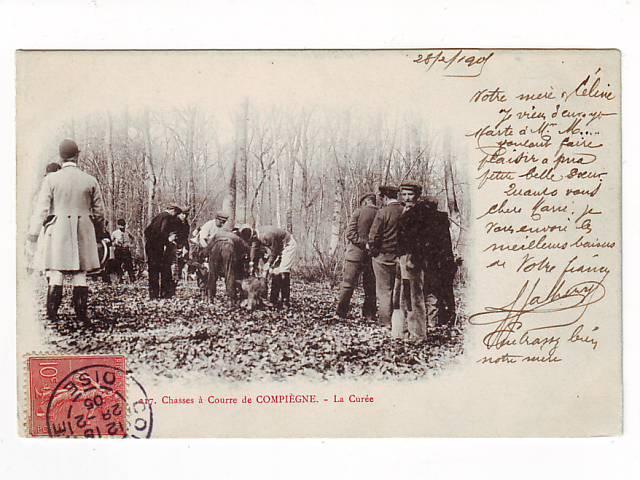 28/2/1905
Votre mère & Céline
viens d'envoyer
Carte à Mme M....
voulant faire
plaisir à ma
petite belle Sœur
Quant à vous
cher Mari, je
vous envoie les
meilleurs baisers
de Votre
Embrassez bien
notre mère
10
OISE
28-2
05
217. Chasses à Courre de COMPIÈGNE. - La Curée